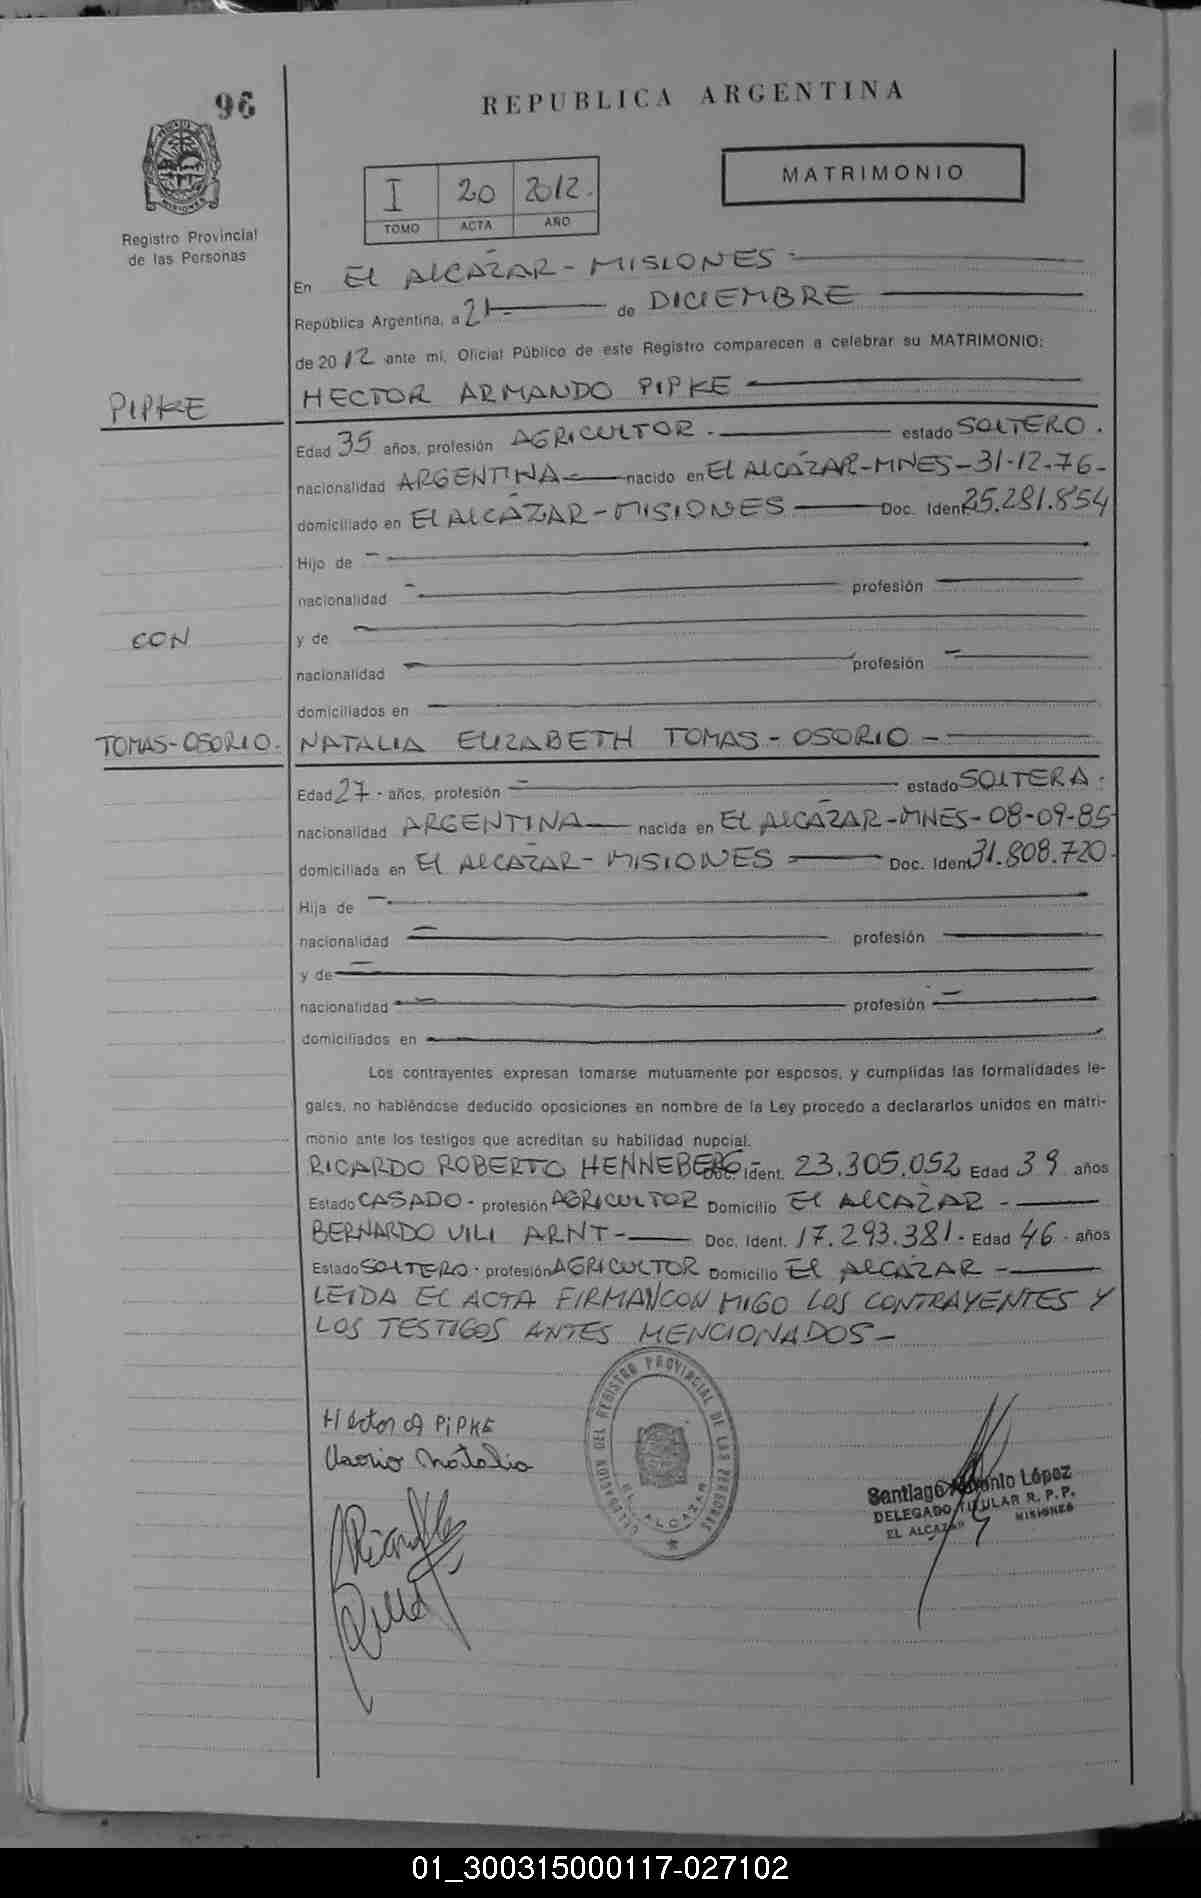 96
REPUBLICA ARGENTINA
MATRIMONIO
I 20 2012.
TOMO ACTA AÑO
Registro Provincial
de las Personas
En EL ALCAZAR - MISIONES
República Argentina, a 21 de DICIEMBRE
de 2012 ante mi, Oficial Público de este Registro comparecen a celebrar su MATRIMONIO:
PIPKE
HECTOR ARMANDO PIPKE
Edad 35 años, profesión AGRICULTOR. estado SOLTERO.
nacionalidad ARGENTINA nacido en EL ALCÁZAR-MNES-31-12-76-
domiciliado en EL ALCÁZAR-MISIONES Doc. Ident. 25.281.854
Hijo de
nacionalidad profesión
CON
y de
nacionalidad profesión
domiciliados en
TOMAS-OSORIO.
NATALIA ELIZABETH TOMAS-OSORIO-
Edad 27 años, profesión estado SOLTERA.
nacionalidad ARGENTINA nacida en EL ALCÁZAR-MNES-08-09-85
domiciliada en EL ALCAZAR-MISIONES Doc. Ident. 31.808.720.
Hija de
nacionalidad profesión
y de
nacionalidad profesión
domiciliados en
Los contrayentes expresan tomarse mutuamente por esposos, y cumplidas las formalidades le-
gales, no habiéndose deducido oposiciones en nombre de la Ley procedo a declararlos unidos en matri-
monio ante los testigos que acreditan su habilidad nupcial.
RICARDO ROBERTO HENNEBERG Doc. Ident. 23.305.052 Edad 39 años
Estado CASADO. profesión AGRICULTOR Domicilio EL ALCAZAR-
BERNARDO VILI ARNT- Doc. Ident. 17.293.381. Edad 46 años
Estado SOLTERO. profesión AGRICULTOR Domicilio EL ALCÁZAR-
LEIDA EL ACTA FIRMAN CON MIGO LOS CONTRAYENTES Y
LOS TESTIGOS ANTES MENCIONADOS-
Héctor A PIPKE
Osorio Natalia
DELEGACION DEL REGISTRO PROVINCIAL DE LAS PERSONAS
EL ALCAZAR
Santiago Antonio López
DELEGADO TITULAR R. P. P.
EL ALCAZAR MISIONES
01_300315000117-027102